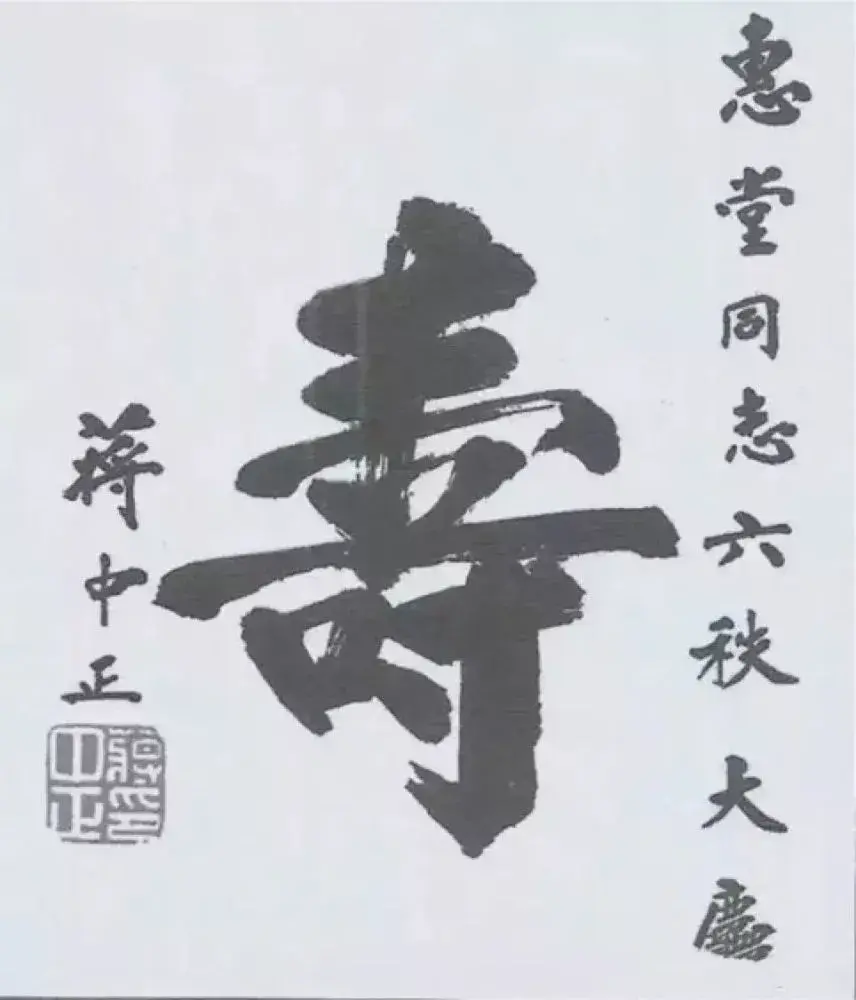 惠堂同志六秩大慶
壽
蔣中正
蔣中正印